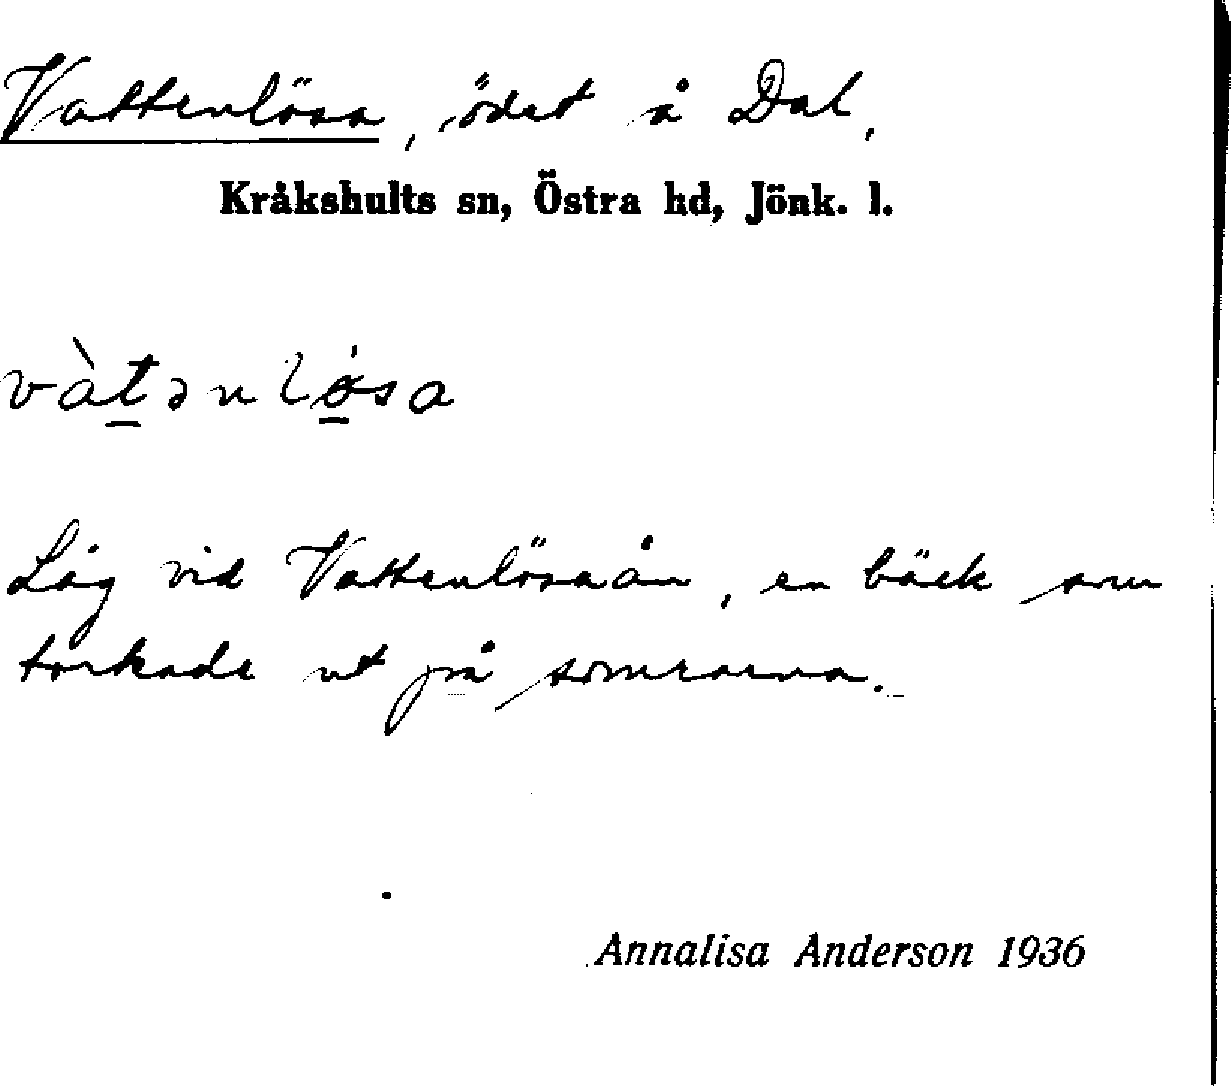 Vattenlösa, ödet å Dal,
Kråkshults sn, Östra hd, Jönk. l.
vàtənlø̀sa
Låg vid Vattenlösaån, en bäck som
torkade ut på somrarna.
Annalisa Anderson 1936